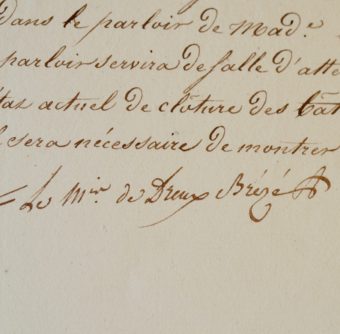 dans le parloir de Mad.e
parloir servira de salle d'atte
tat actuel de clôture des bât
sera nécessaire de montrer
Le M.is de Dreux Brézé